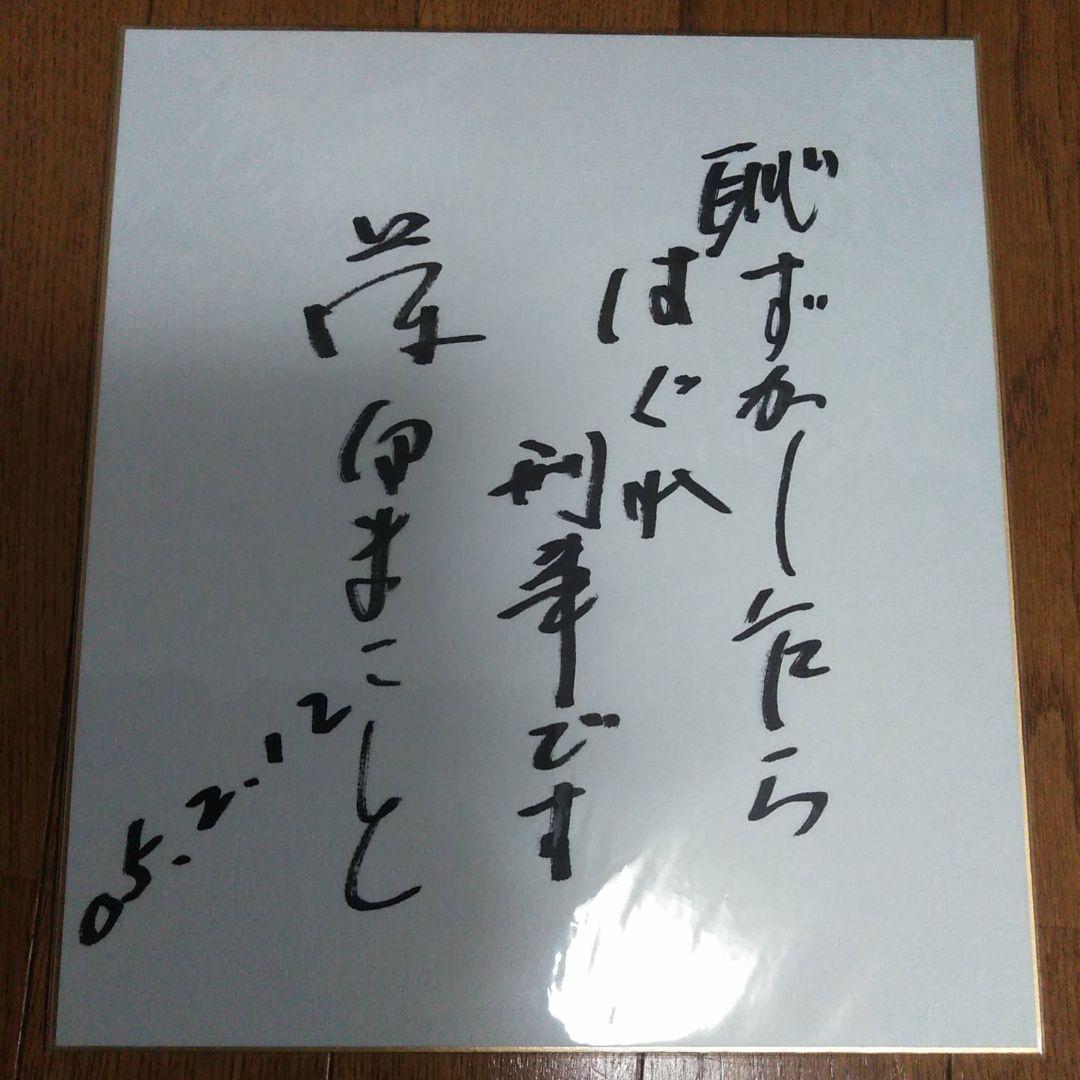 恥ずかし乍ら
はぐれ
刑事です
藤田まこと
05.2.12